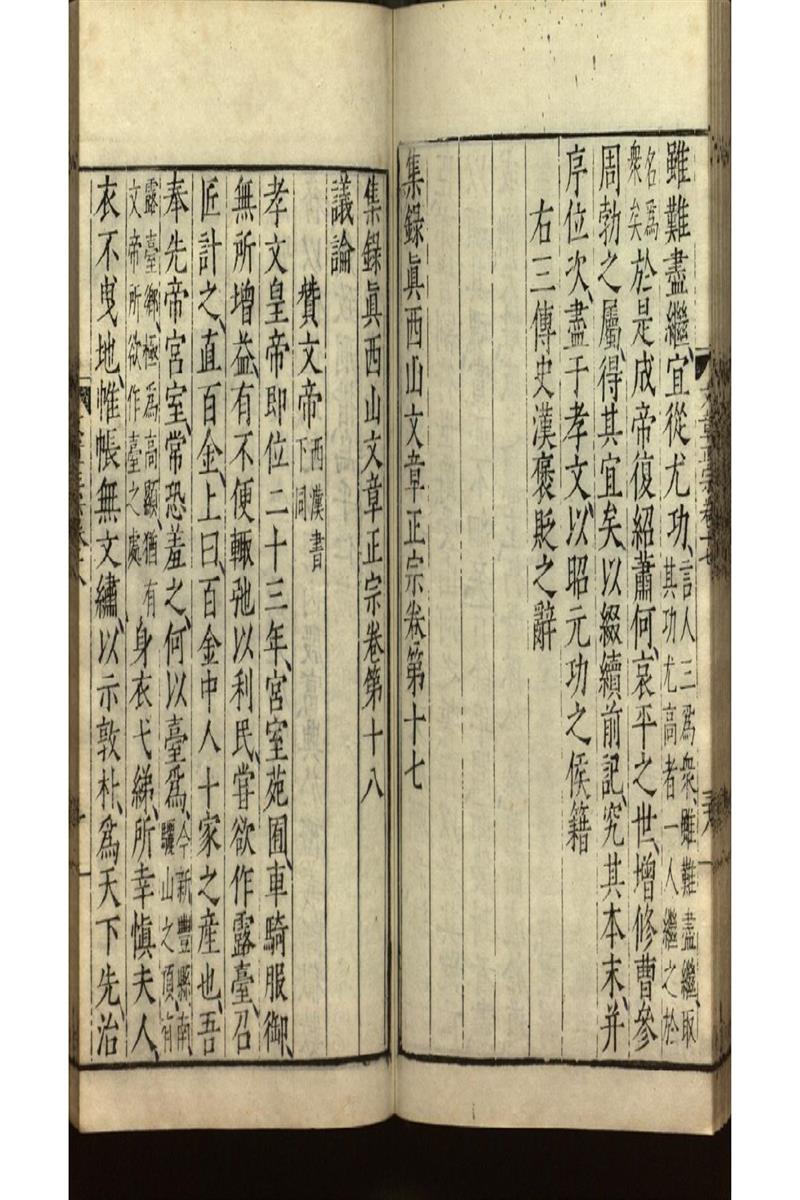 雖難盡繼、宜從尤功、言人三爲衆、雖難盡繼、取其功尤高者一人繼之於
名爲衆矣於是成帝復紹蕭何、哀平之世、增修曹參
周勃之屬、得其宜矣、以綴續前記、究其本末、并
序位次、盡于孝文、以昭元功之侯籍
右三傳史漢褒貶之辭
集錄眞西山文章正宗卷第十七
集錄眞西山文章正宗卷第十八
議論
贊文帝西漢書下同
孝文皇帝即位二十三年、宮室苑囿、車騎服御、
無所增益、有不便輒弛以利民、甞欲作露臺、召
匠計之、直百金、上曰、百金中人十家之産也、吾
奉先帝宮室、常恐羞之、何以臺爲、今新豐縣南驪山之頂有
露臺鄉、極爲高顯、猶有文帝所欲作臺之處身衣弋綈、所幸愼夫人、
衣不曳地、帷帳無文繡、以示敦朴、爲天下先、治